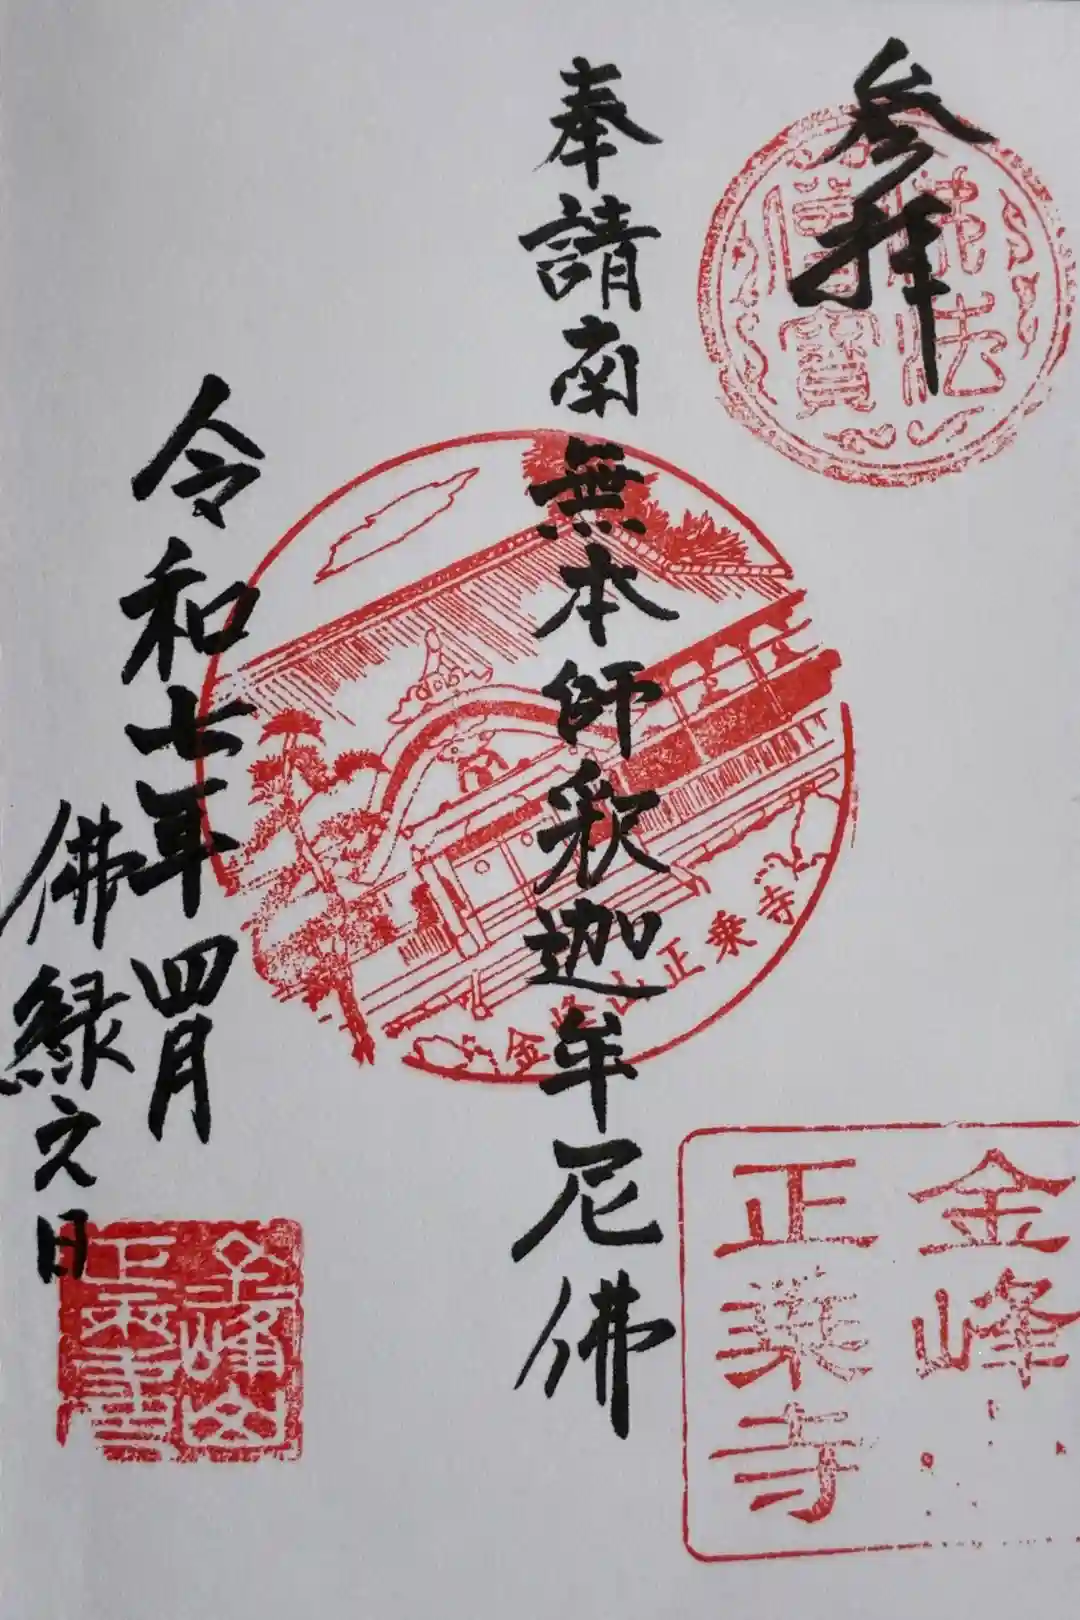 参拝
佛法
僧寳
奉請南無本師釈迦牟尼佛
金峰山正乗寺
令和七年四月
佛縁之日
金峰
正乗寺
金峰山
正乗寺